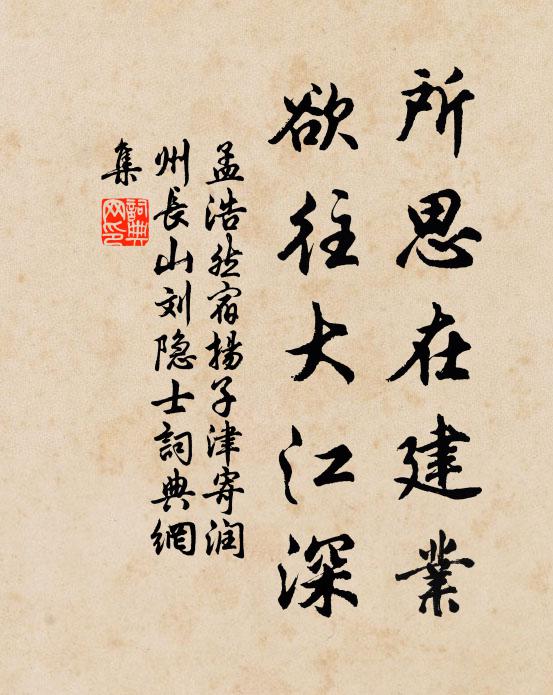 所思在建業
欲往大江深
孟浩然宿揚子津寄润
州長山刘隐士詞典網
集
詞典
网印